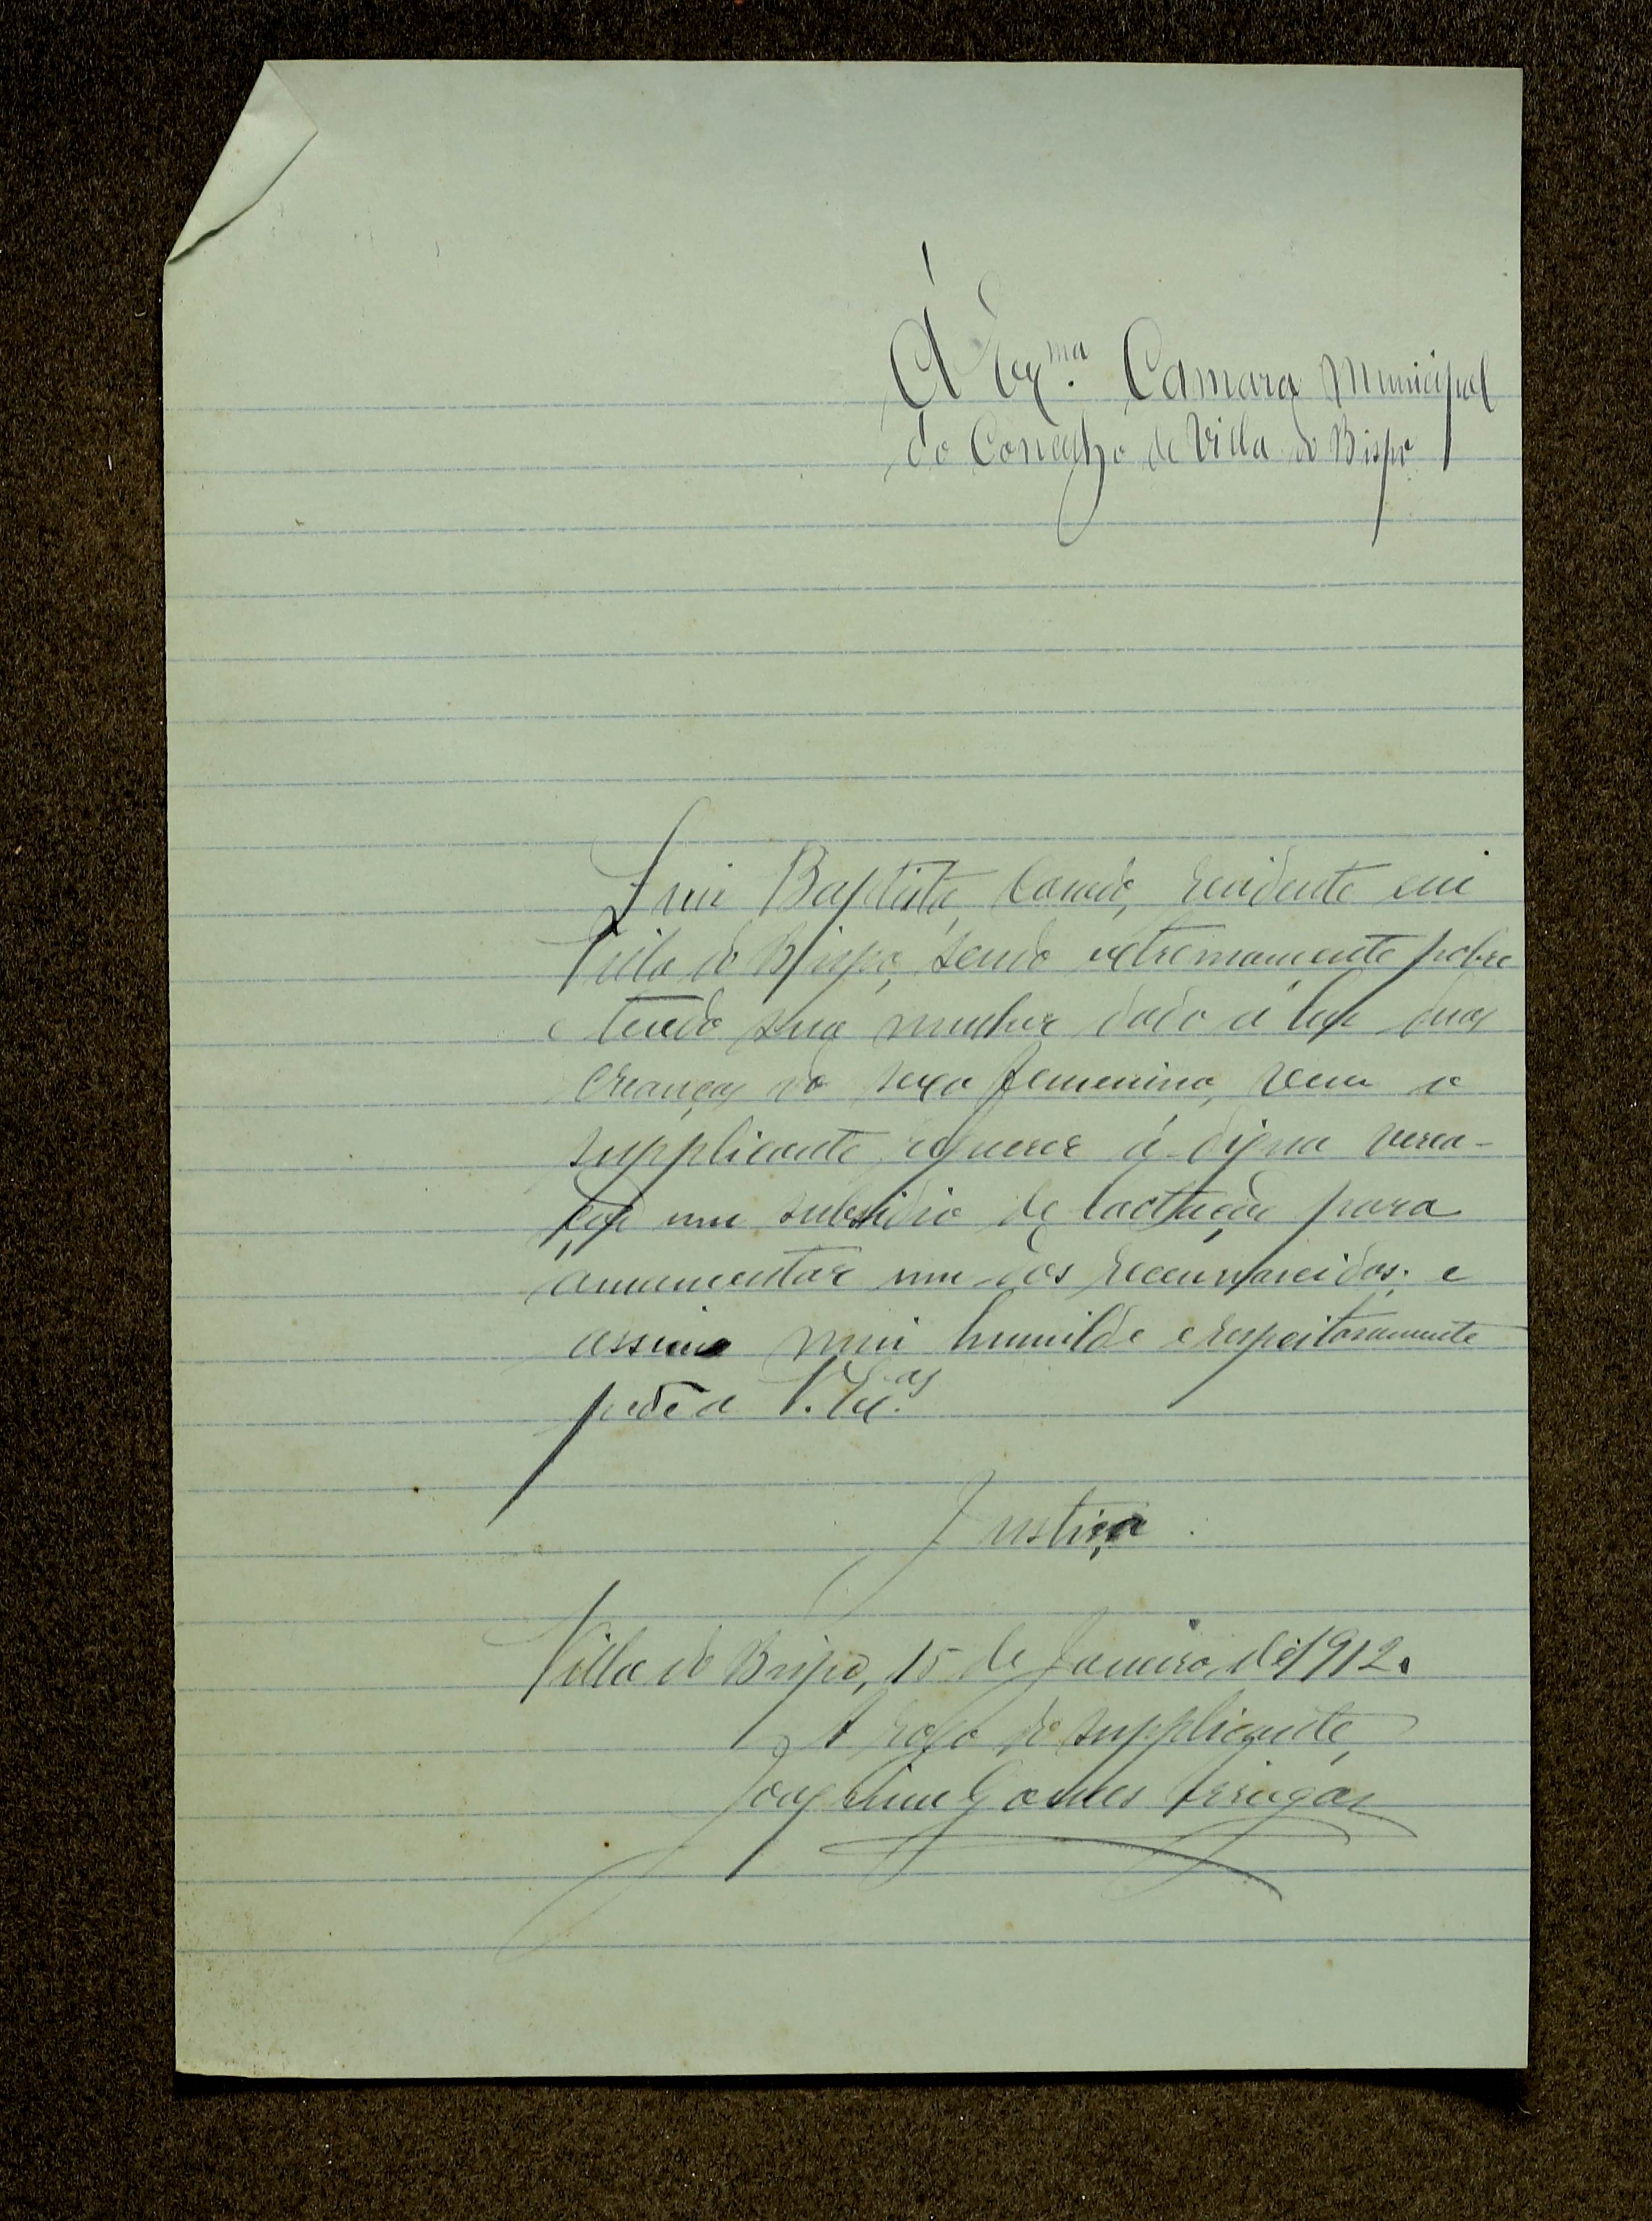 Á Ex.ma Camara Municipal
do Concelho de Villa do Bispo
Luiz Baptista, casado, residente em
Villa do Bispo, sendo extremamente pobre
e tendo sua mulher dado á luz duas
creanças do sexo femenino, vem o
supplicante requerer á digna verea-
ção um subsidio de lactação para
amamentar um dos recemnascidos; e
assim mui humilde e respeitosamente
pede a V. Ex.as
Justiça.
Villa do Bispo, 15 de Janeiro de 1912.
A rogo do supplicante,
Joaquim Gomes